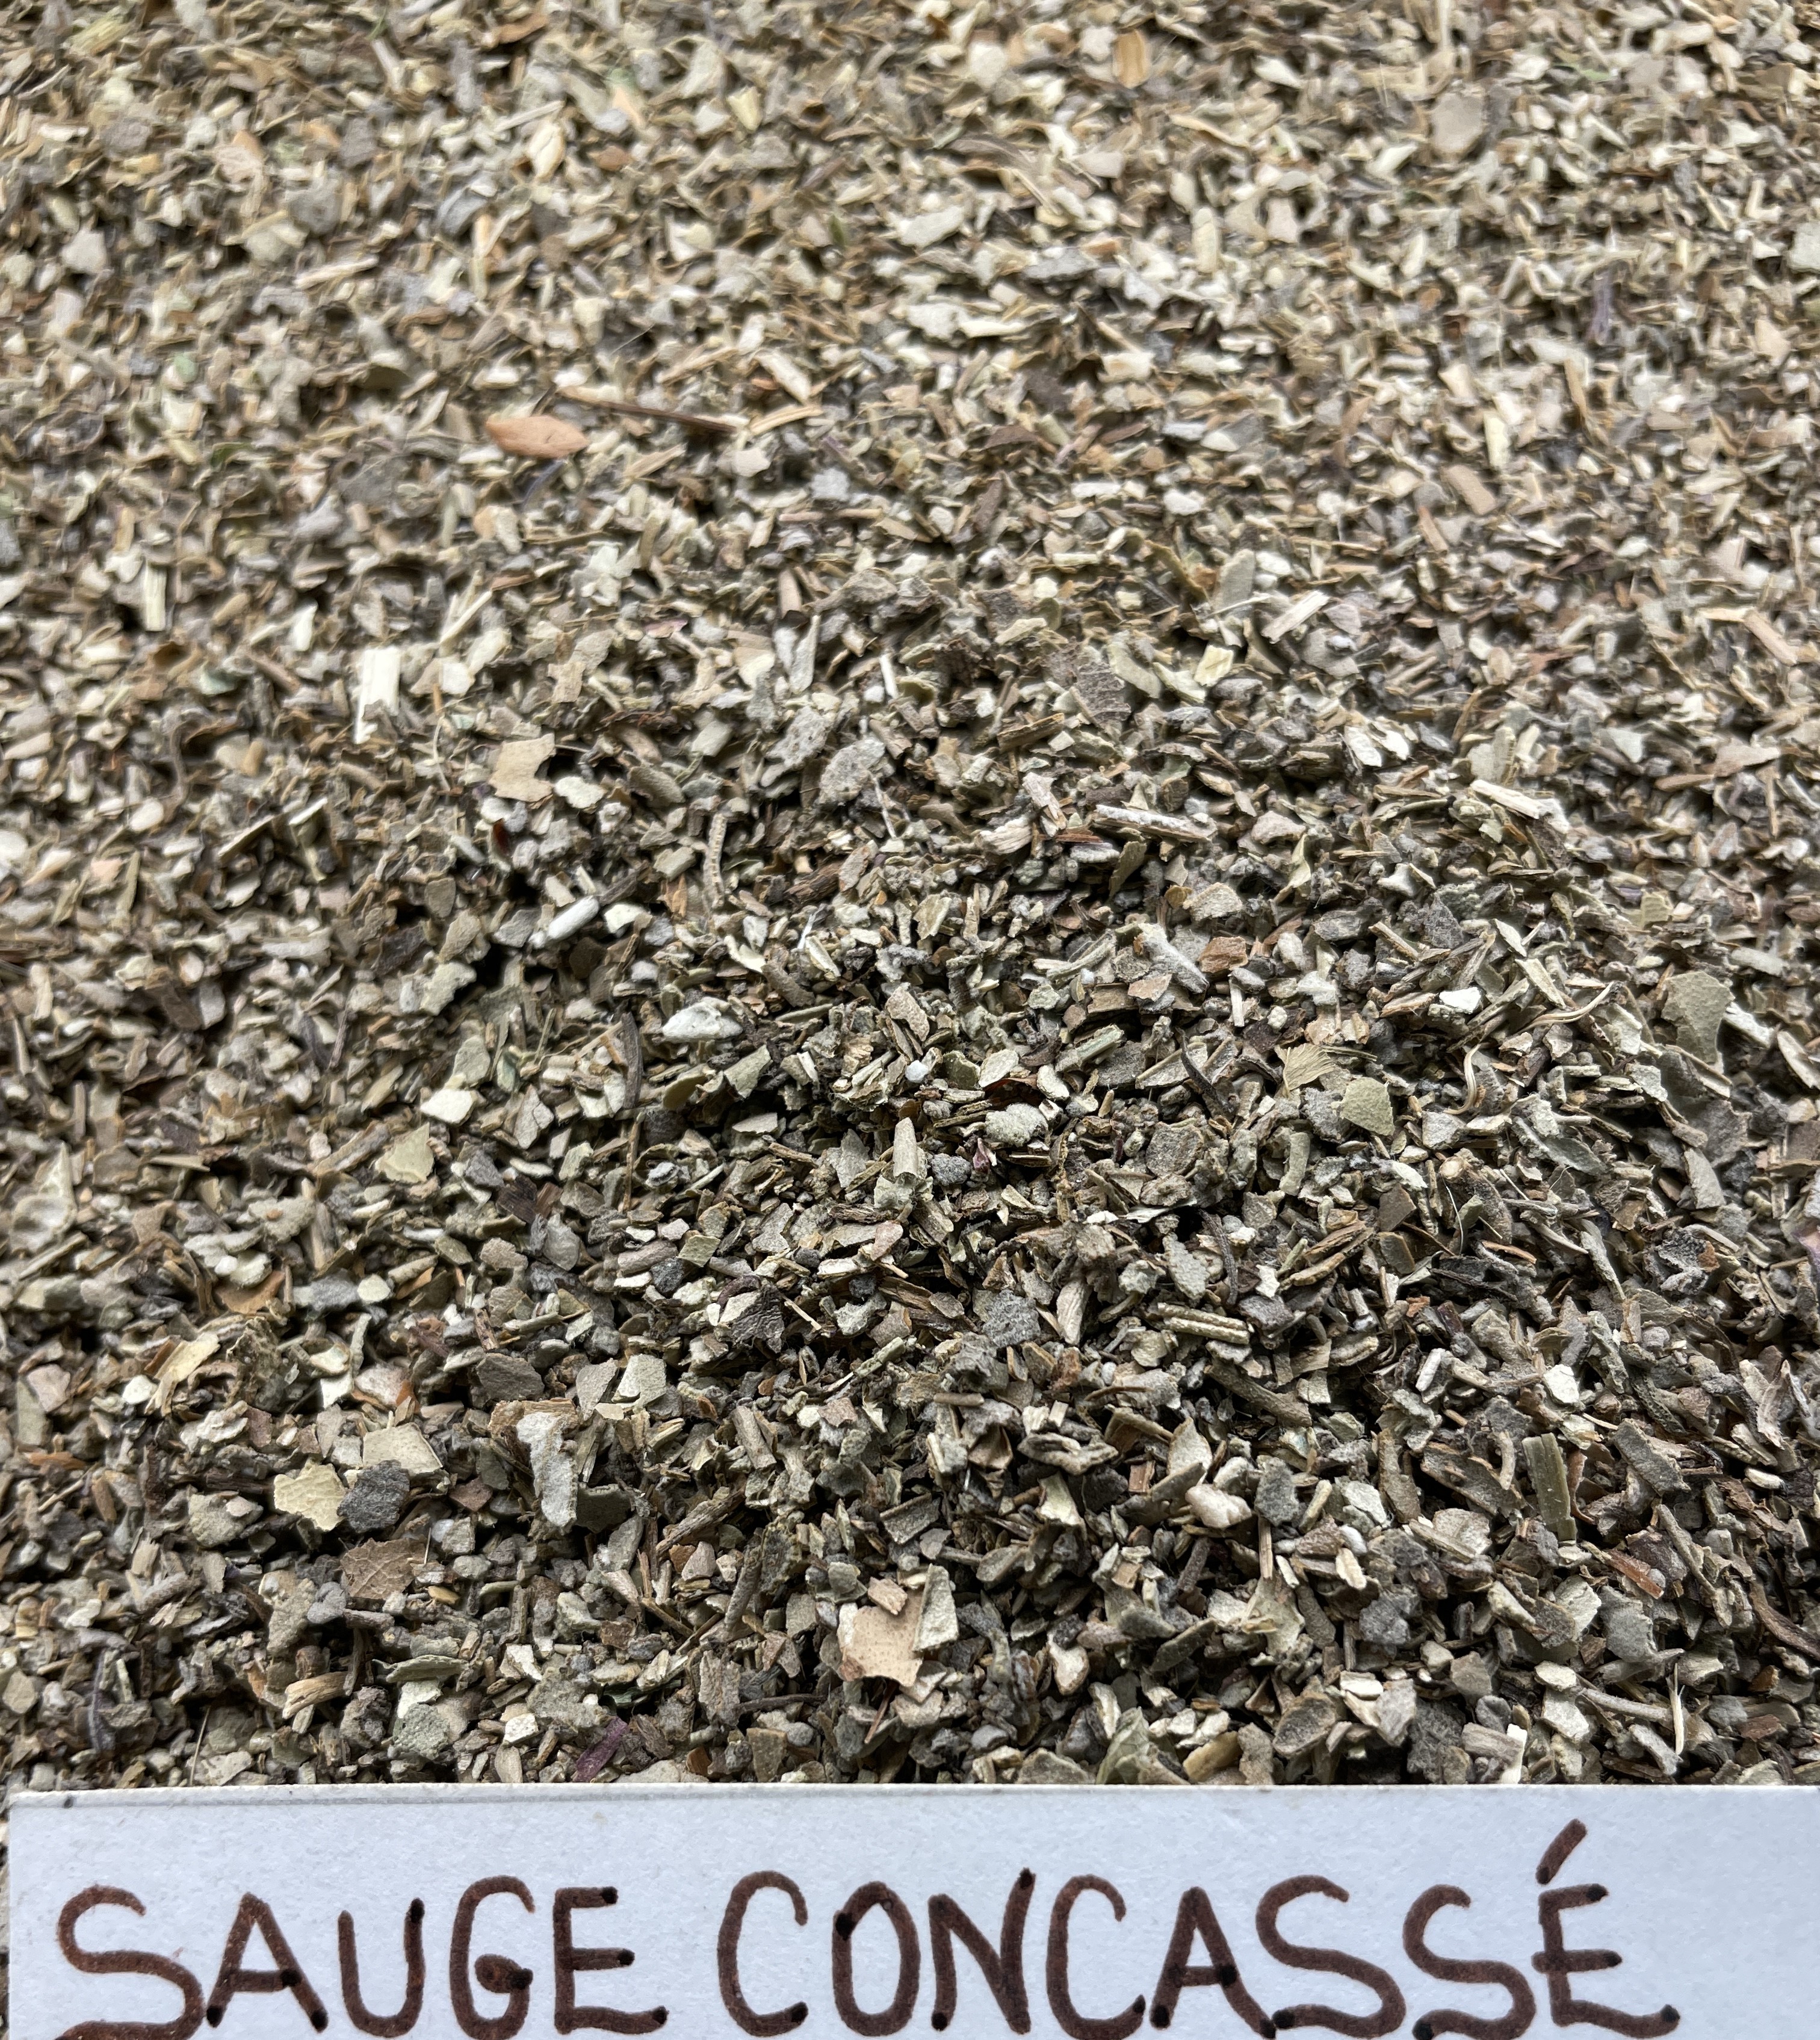 SAUGE CONCASSÉ